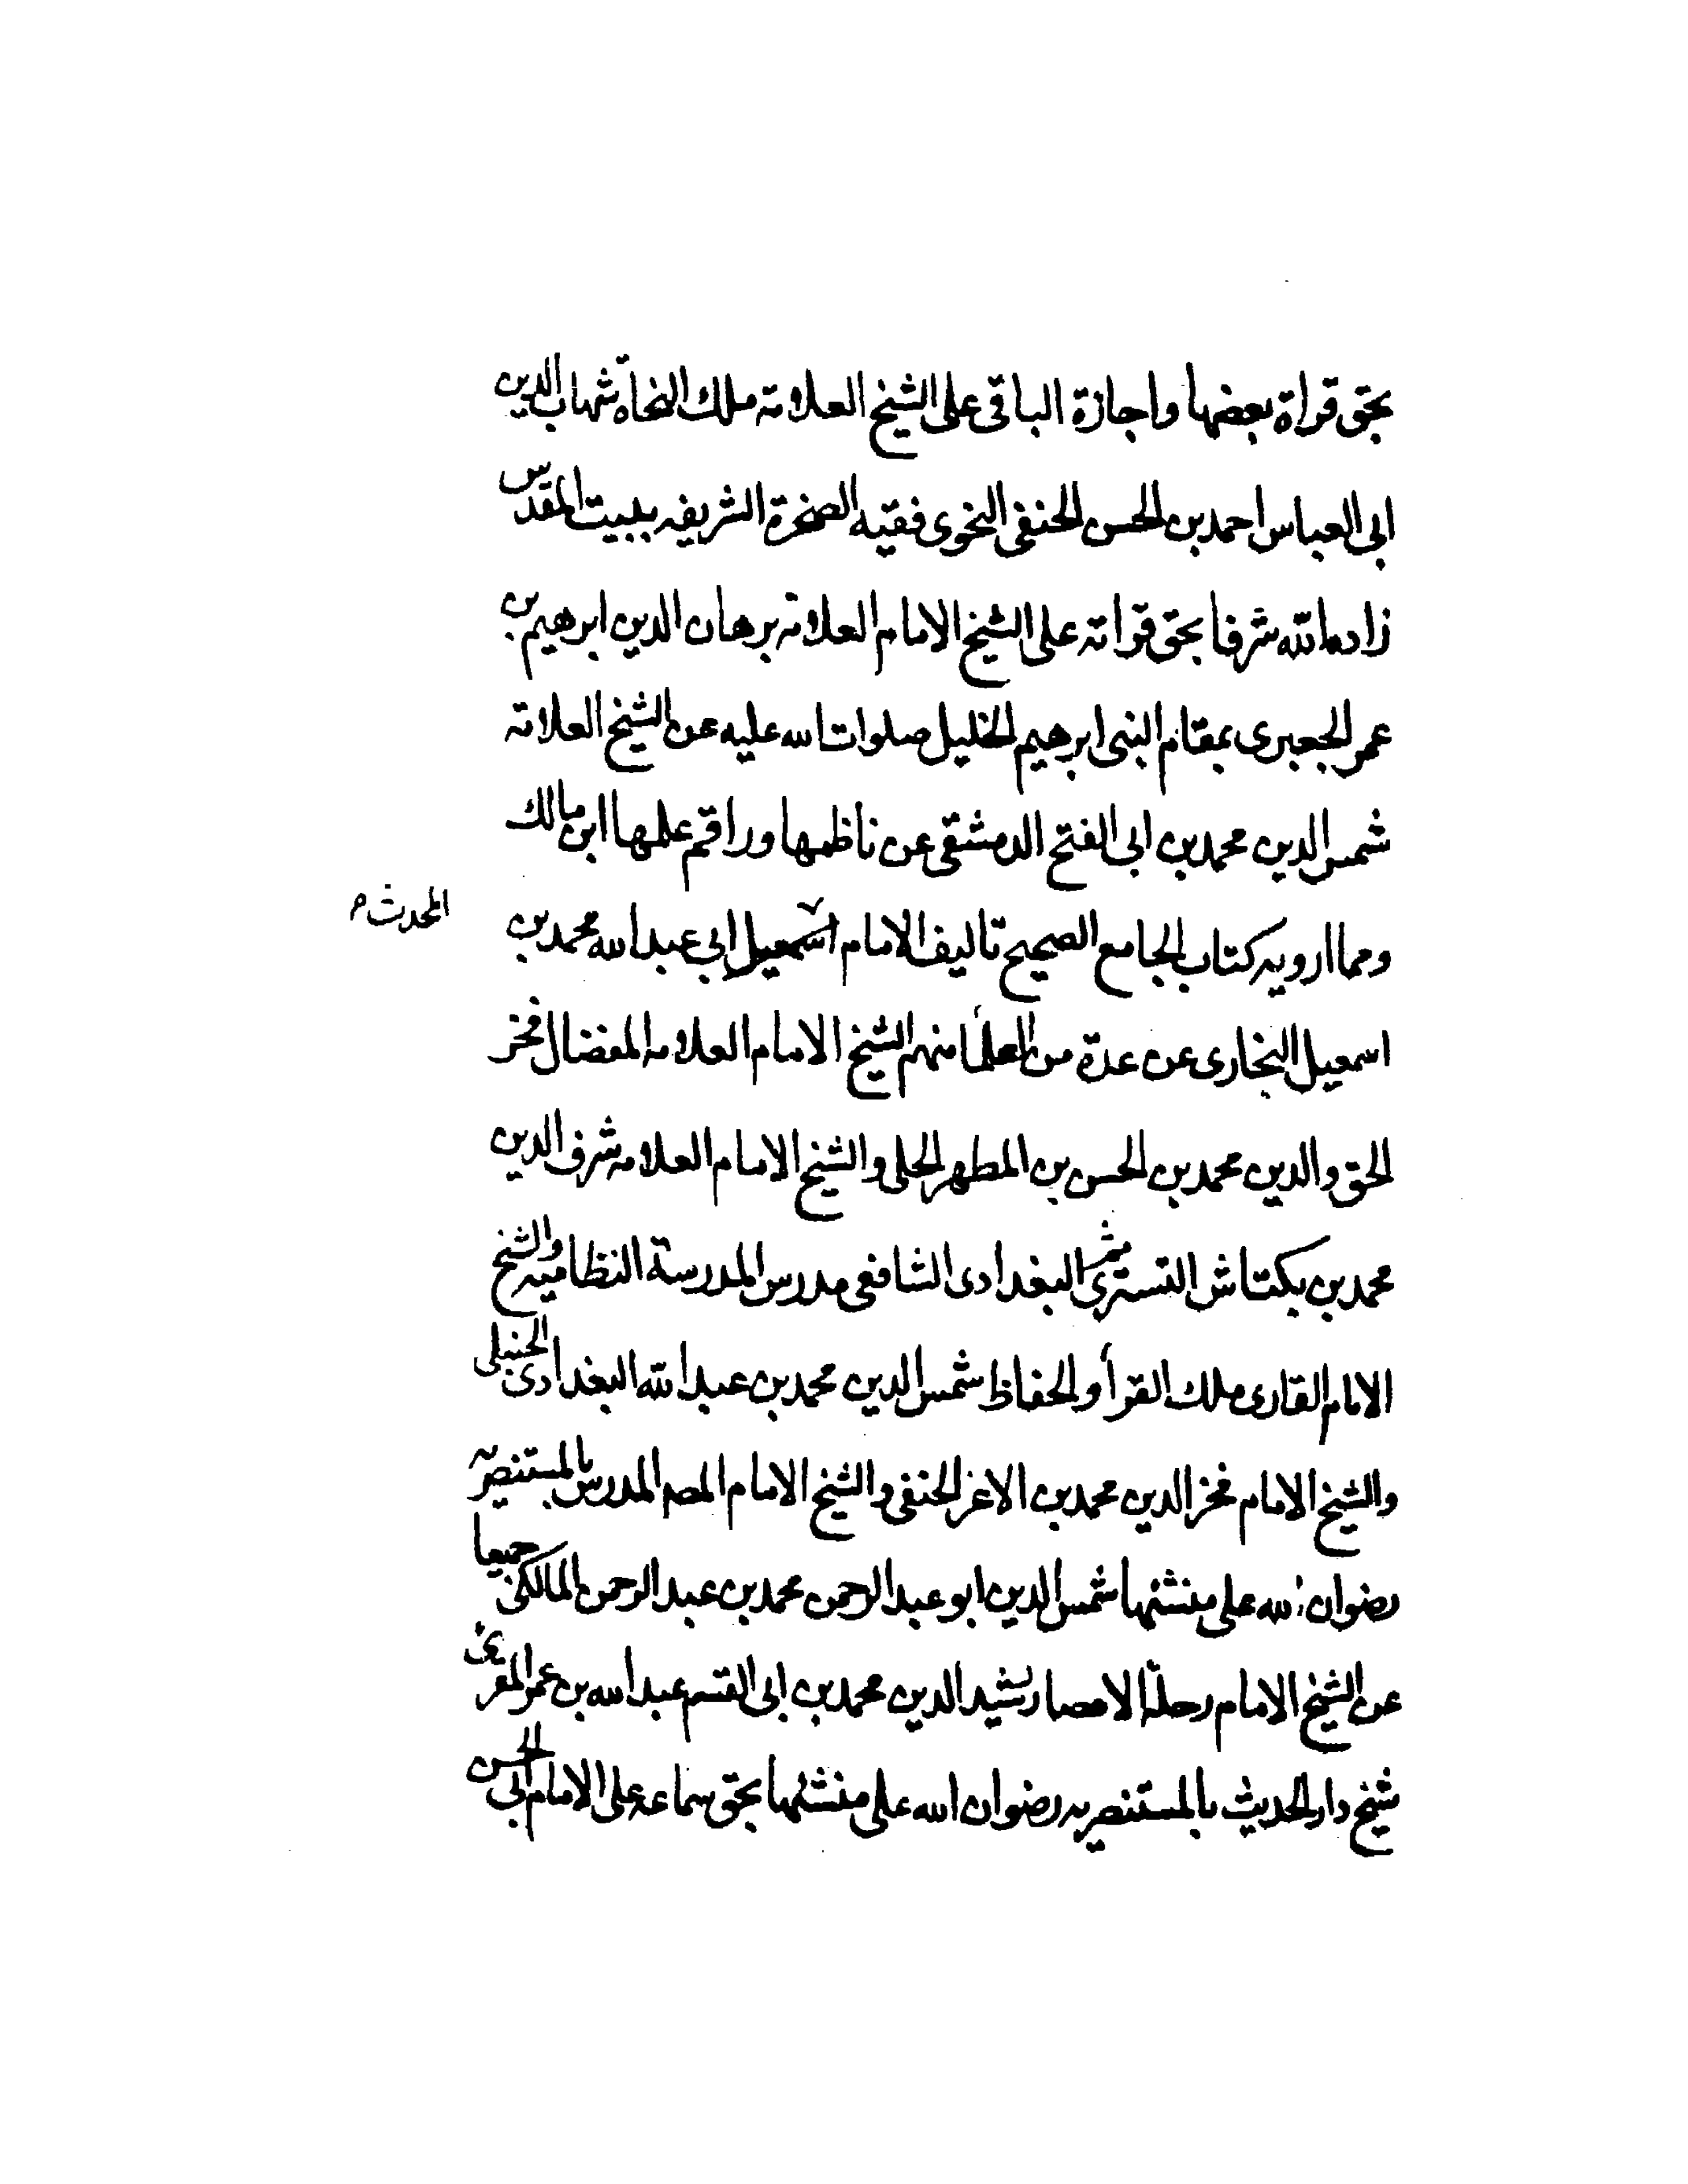 بحق قراة بعضها واجازة الباقى على الشيخ العلامة ملك النحاة شهاب الدين
ابى العباس احمد بن الحسن الحنفى النحوى فقيه الصخرة الشريفه ببيت المقدس
زادها الله شرفا بحق قراته على الشيخ الامام العلامة برهان الدين ابرهيم بن
عمر الجعبرى بمقام النبى ابرهيم الخليل صلوات الله عليه عن الشيخ العلامة
شمس الدين محمد بن ابى الفتح الدمشقى عن ناظمها وراقم علمها ابن مالك
ومما ارويه كتاب الجامع الصحيح تاليف الامام المحدث ابى عبد الله محمد بن
اسمعيل البخارى عن عدة من العلما منهم الشيخ الامام العلامه المفضال فخر
الحق والدين محمد بن الحسن بن المطهر الحلى والشيخ الامام العلامه شرف الدين
محمد بن بكتاش التسترى ثم البغدادى الشافعى مدرس المدرسة النظاميه والشيخ
الامام القارى ملك القرا والحفاظ شمس الدين محمد بن عبد الله البغدادى الحنبلى
والشيخ الامام فخر الدين محمد بن الاعز الحنفى والشيخ الامام المدرس بالمستنصريه
رضوان الله على منشئها شمس الدين ابو عبد الرحمن محمد بن عبد الرحمن المالكى جميعا
عن الشيخ الامام رحلة الامصار رشيد الدين محمد بن ابى القسم عبد الله بن عمر المقرى
شيخ دار الحديث بالمستنصريه رضوان الله على منشئها بحق سماعه على الامام ابى الحسن